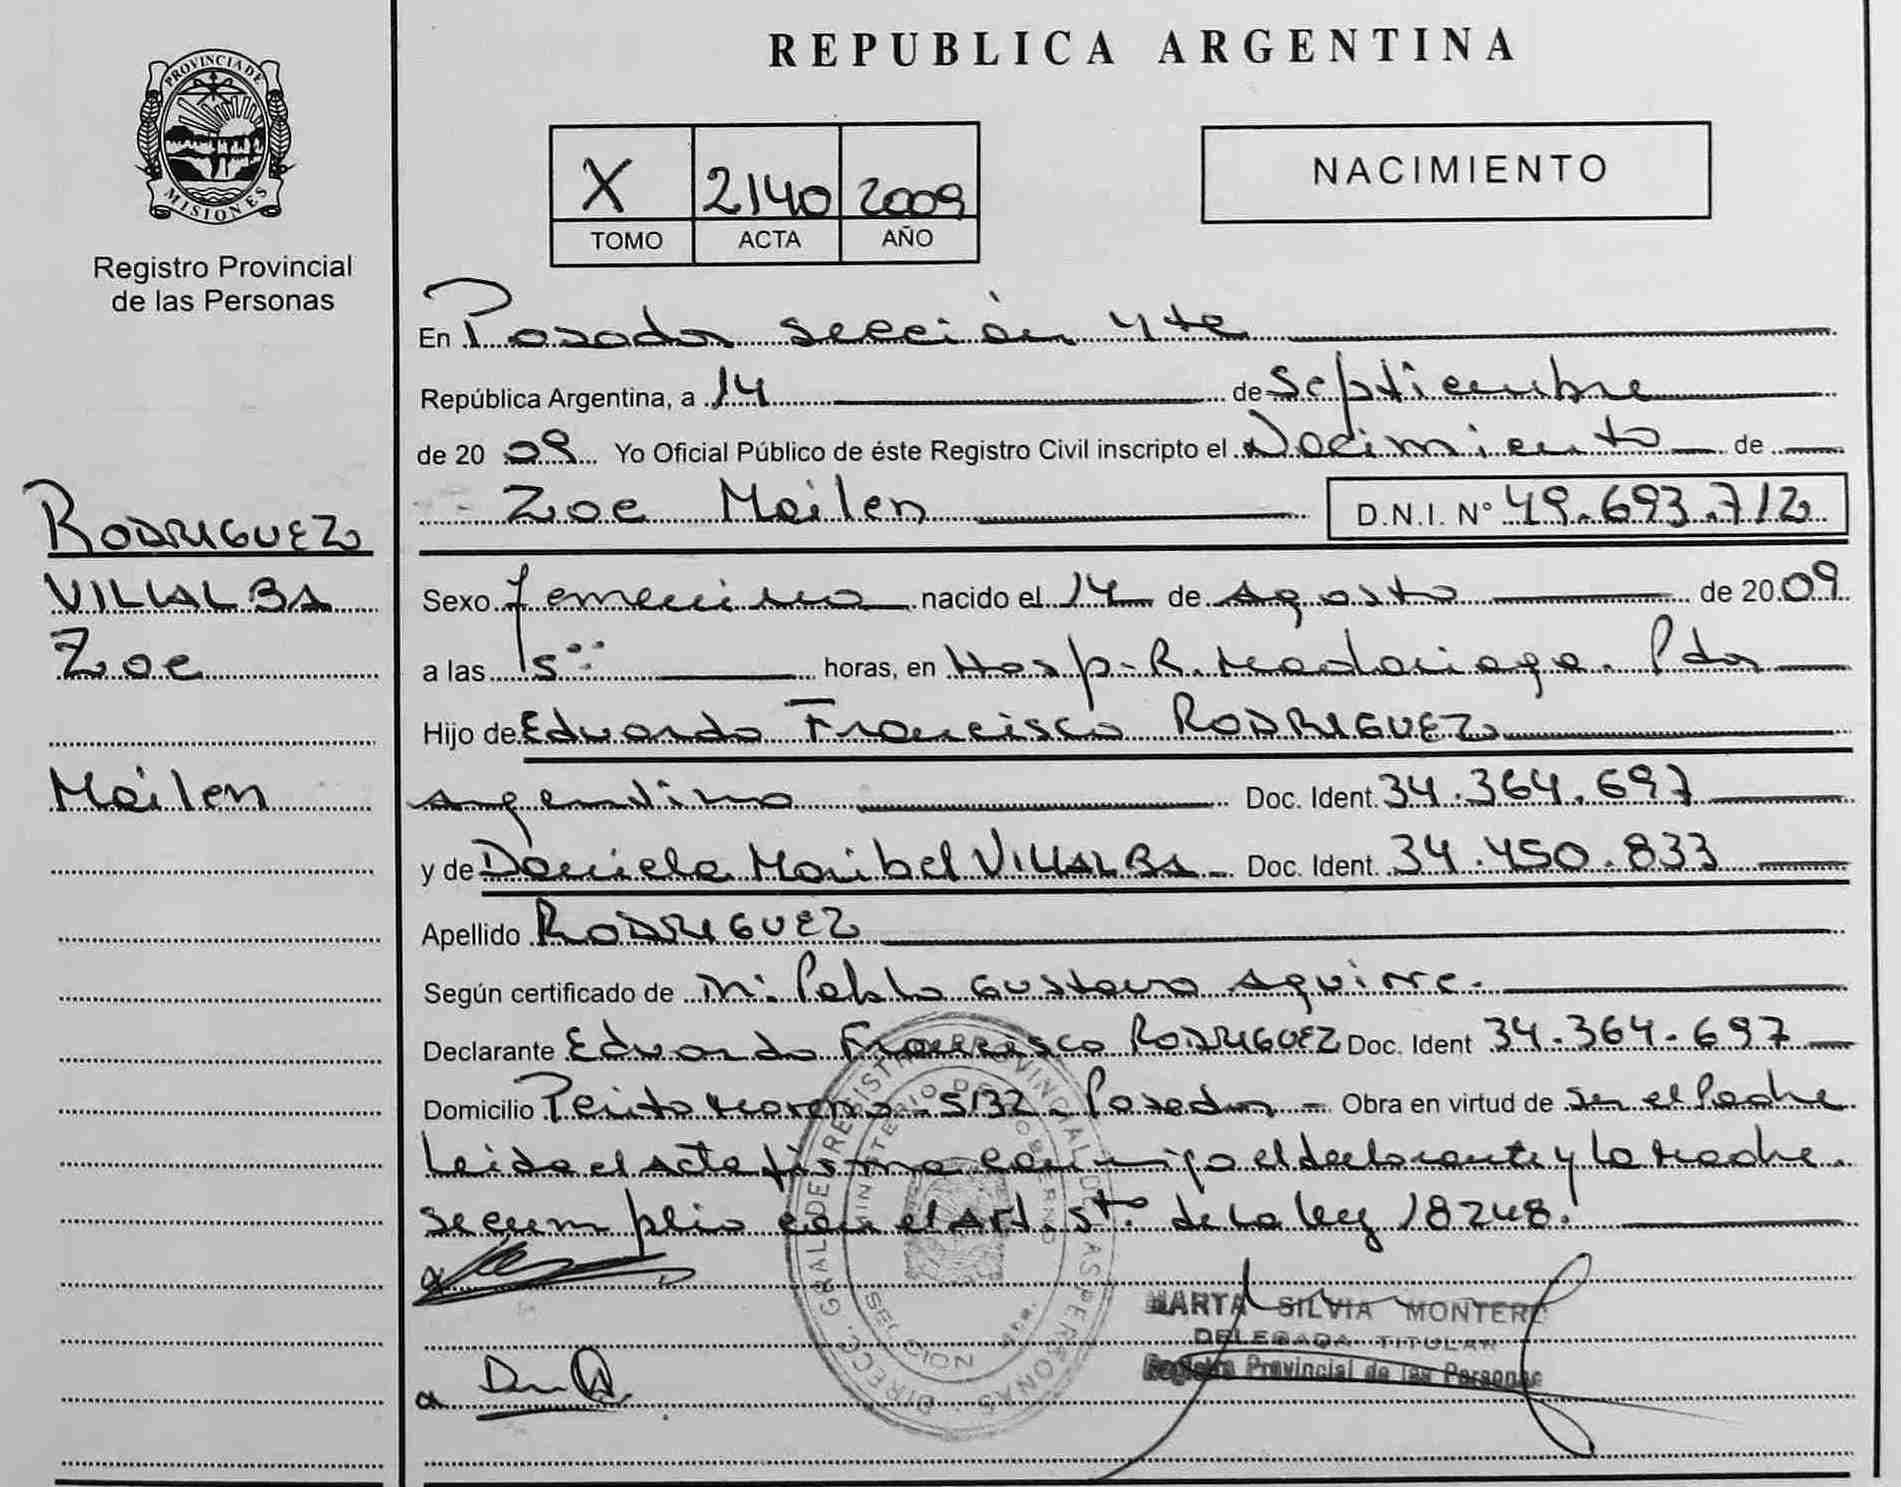 PROVINCIA DE
MISIONES
Registro Provincial
de las Personas
RODRIGUEZ
VILLALBA
Zoe
Meilen
REPUBLICA ARGENTINA
X 2140 2009
TOMO ACTA AÑO
NACIMIENTO
En Posadas sección 4ta
República Argentina, a 14 de Septiembre
de 2009 Yo Oficial Público de éste Registro Civil inscripto el Nacimiento de
Zoe Meilen D.N.I. N° 49.693.712
Sexo femenino nacido el 14 de Agosto de 2009
a las horas, en Hosp. R. Madariaga. Pdas
Hijo de Eduardo Francisco RODRIGUEZ
Argentino Doc. Ident. 34.364.697
y de Daniela Maribel VILLALBA Doc. Ident. 34.450.833
Apellido RODRIGUEZ
Según certificado de Pablo Gustavo Aguirre.
Declarante Eduardo Francisco RODRIGUEZ Doc. Ident 34.364.697
Domicilio Perito Moreno - 5132 - Posadas - Obra en virtud de Ser el Padre
Leida el Acta firma conmigo el declarante y la Madre.
Se cumplio con el Art. 5to. de la ley 18248.
MARTA SILVIA MONTERO
DELEGADA TITULAR
Registro Provincial de las Personas
DIRECC. GRAL DEL REGISTRO PROVINCIAL DE LAS PERSONAS
MINISTERIO DE GOBIERNO